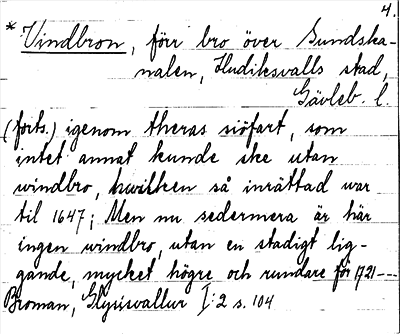 4.
* Vindbron, förr bro över Sundska-
nalen, Hudiksvalls stad,
Gävleb. l.
(forts.) igenom theras siöfart, som
intet annat kunde ske utan
windbro, hwilken så inrättad war
til 1647; Men nu sedermera är här
ingen windbro, utan en stadigt lig-
gande, mycket högre och rundare för 1721---
Broman, Glysisvallur I:2 s. 104